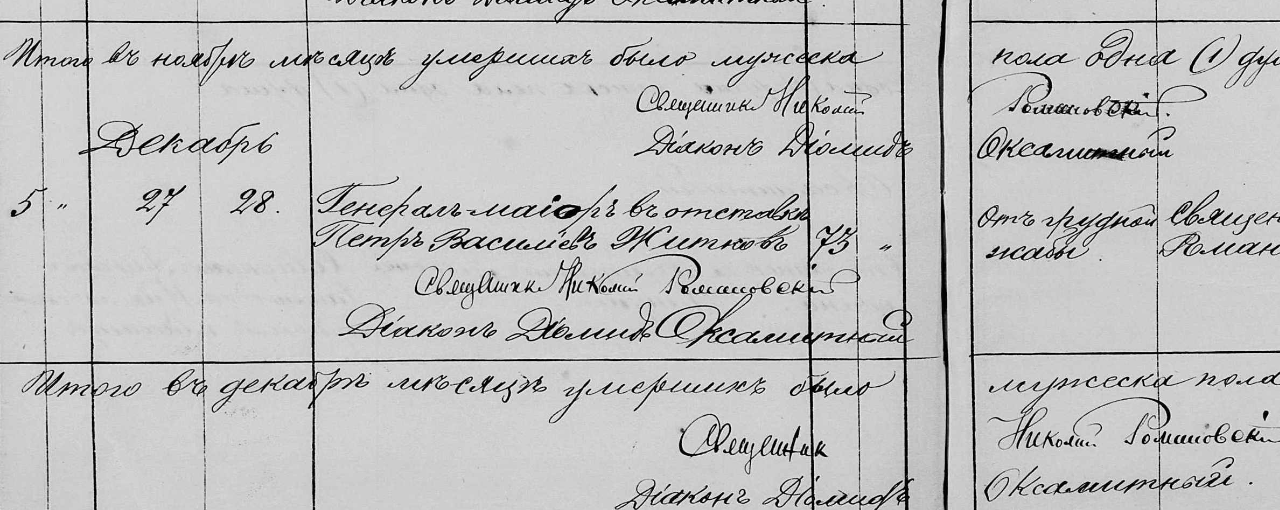 Діаконъ Діомидъ Оксамитный.
Итого въ ноябрѣ мѣсяцѣ умершихъ было мужеска пола одна (1) ду
Священникъ Николай Романовскій.
Декабрь Діаконъ Діомидъ Оксамитный
5 " 27 28. Генералъ-маіоръ въ отставкѣ От грудной Священ
Петръ Васильевъ Житковъ 75 " жабы. Роман
Священникъ Николай Романовскій
Діаконъ Діомидъ Оксамитный
Итого въ декабрѣ мѣсяцѣ умершихъ было мужеска пола
Священник Николай Романовскій
Діаконъ Діомидъ Оксамитный.